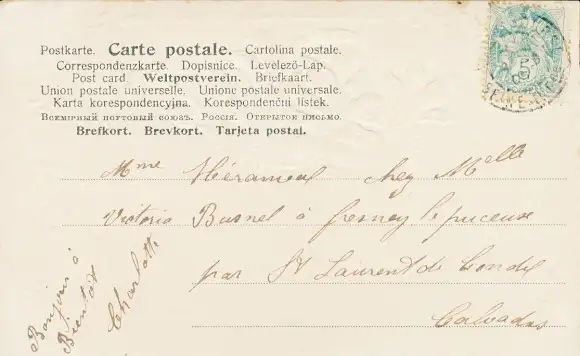 Postkarte. Carte postale. Cartolina postale.
Correspondenzkarte. Dopisnice. Levelező-Lap.
Post card. Weltpostverein. Briefkaart.
Union postale universelle. Unione postale universale.
Karta korespondencyjna. Korespondenční listek.
Всемірный почтовый союзъ. Россія. Открытое письмо.
Brefkort. Brevkort. Tarjeta postal.
5
Mme chez Melle
Victoria Busnel à fresney le puceux
par St Laurent de Condel
Calvados
Bonjour à
Bientôt
Charlotte